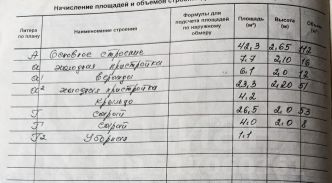 Начисление площадей и объемов строений
Литера по плану Наименование строения Формулы для подсчета площадей по наружному обмеру Площадь (м²) Высота (м) Объем
А Основное строение 42,3 2,65 112
а жилая пристройка 7.7 2,10 16
а¹ веранда 6.1 2,0 12
а² пристройка 23,3 2,20 51
крыльцо 4.2
Г сарай 26,5 2,0 53
Г¹ сарай 4.0 2,0 8
Г2 Уборная 1.1